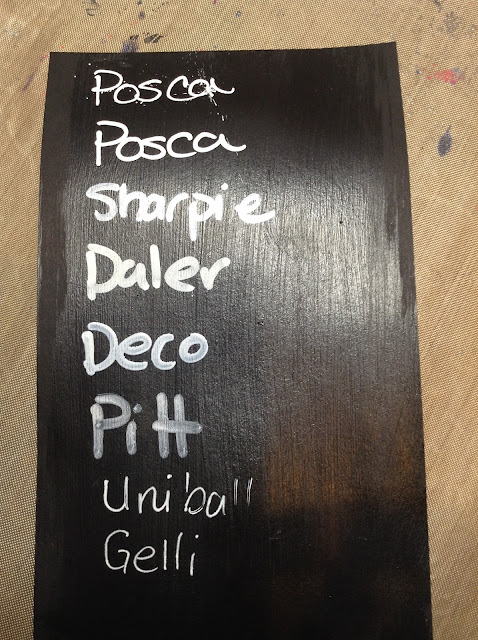 Posca
Posca
Sharpie
Daler
Deco
Pitt
Uniball
Gelli